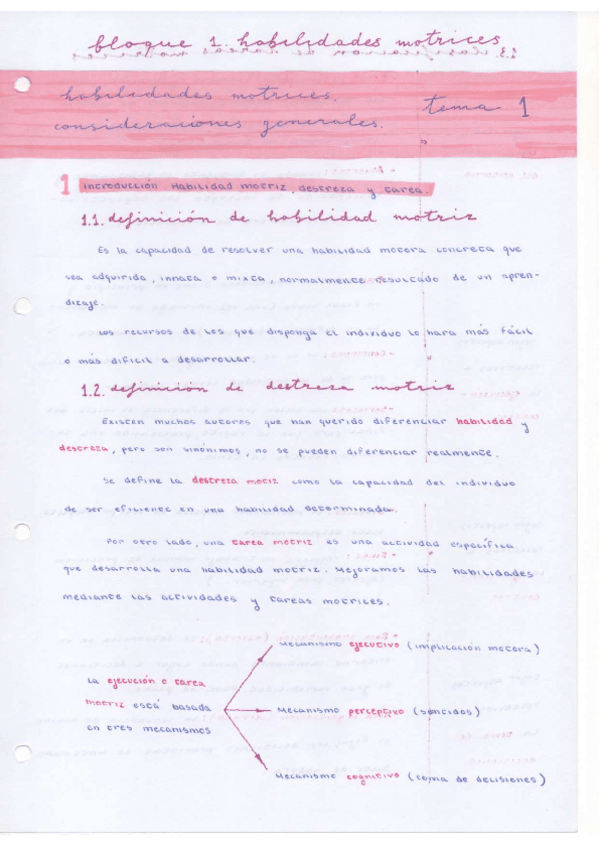 bloque 1. habilidades motrices
habilidades motrices.
consideraciones generales.
tema 1
1 introducción Habilidad motriz, destreza y tarea.
1.1. definición de habilidad motriz
Es la capacidad de resolver una habilidad motora concreta que
sea adquirida, innata o mixta, normalmente resultado de un apren-
dizaje.
Los recursos de los que disponga el individuo lo hara más fácil
o más dificil a desarrollar.
1.2. definición de destreza motriz
Existen muchos autores que han querido diferenciar habilidad y
destreza, pero son sinónimos, no se pueden diferenciar realmente.
Se define la destreza motiz como la capacidad del individuo
de ser eficiente en una habilidad determinada.
Por otro lado, una tarea motriz es una actividad específica
que desarrolla una habilidad motriz. Mejoramos las habilidades
mediante las actividades y tareas motrices.
La ejecución o tarea
motriz está basada
en tres mecanismos
Mecanismo ejecutivo (implicación motora)
Mecanismo perceptivo (sentidos)
Mecanismo cognitivo (toma de decisiones)